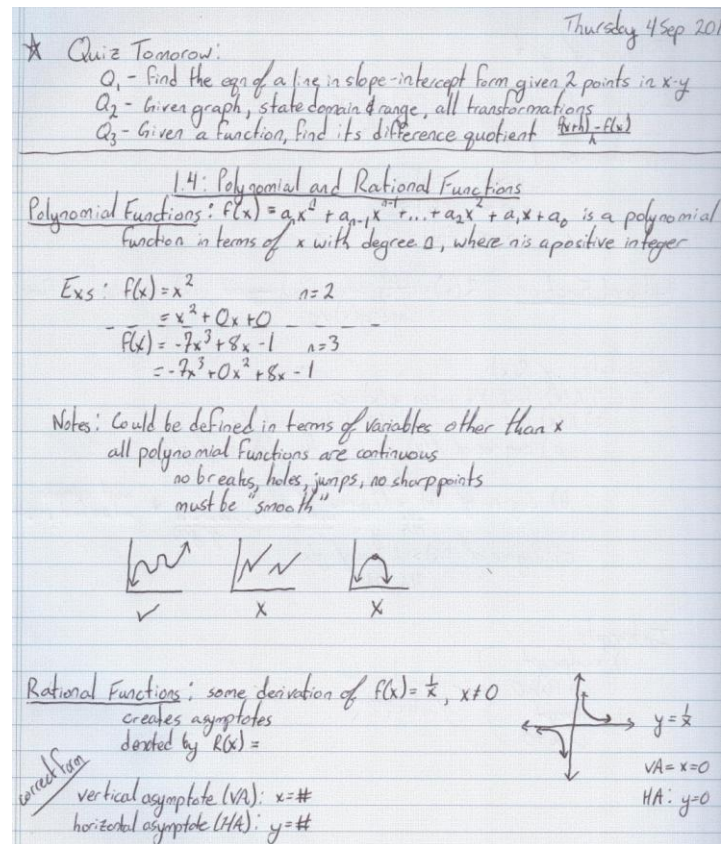 Thursday 4 Sep 201
☆ Quiz Tomorow:
Q₁ - Find the eqn of a line in slope-intercept form given 2 points in x-y
Q₂ - Given graph, state domain & range, all transformations
Q₃ - Given a function, find its difference quotient (f(x+h) - f(x))/h
1.4: Polynomial and Rational Functions
Polynomial Functions: f(x) = aₙxⁿ + aₙ₋₁xⁿ⁻¹ + ... + a₂x² + a₁x + a₀ is a polynomial
function in terms of x with degree n, where n is a positive integer
Exs: f(x) = x² n=2
= x² + 0x + 0
f(x) = -7x³ + 8x - 1 n=3
= -7x³ + 0x² + 8x - 1
Notes: Could be defined in terms of variables other than x
all polynomial functions are continuous
no breaks, holes, jumps, no sharp points
must be "smooth"
✓ x x
Rational Functions: some derivation of f(x) = 1/x, x≠0
creates asymptotes
denoted by R(x) =
y = 1/x
VA = x=0
HA: y=0
correct form
vertical asymptote (VA): x=#
horizontal asymptote (HA): y=#